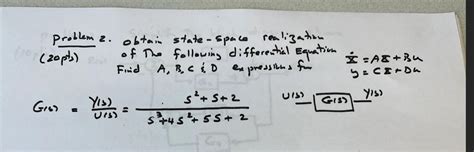 Problem 2. obtain state-space realization
(20pts) of The following differential Equation Ẋ = AX + Bu
Find A, B, C & D expressions for y = CX + Du
G(s) = Y(s)/U(s) = (s²+s+2)/(s³+4s²+5s+2) U(s) G(s) Y(s)